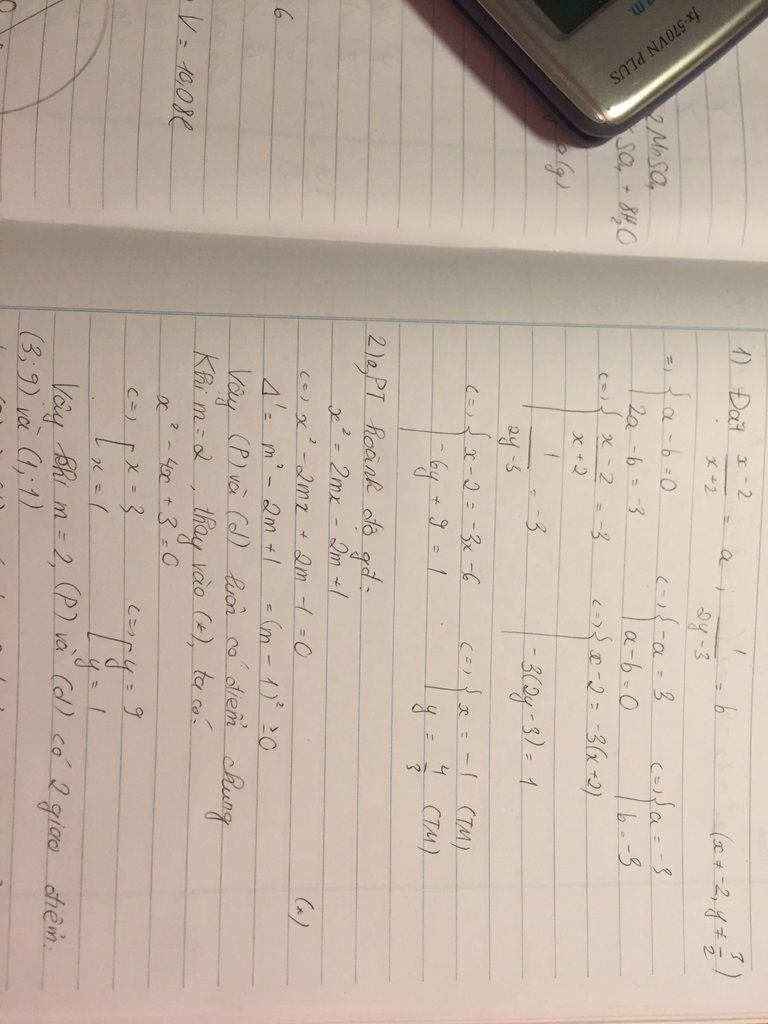 fx-570VN PLUS
2MnSO₄
SO₄ + 8H₂O
a(g)
6
V = 10,08l
1) Đặt x-2/x+2 = a ; 1/2y-3 = b (x ≠ -2, y ≠ 3/2)
=> { a - b = 0 <=> { -a = 3 <=> { a = -3
2a - b = -3 a - b = 0 b = -3
<=> { x-2/x+2 = -3 <=> { x - 2 = -3(x+2)
1/2y-3 = -3 -3(2y-3) = 1
<=> { x - 2 = -3x - 6 <=> { x = -1 (TM)
-6y + 9 = 1 y = 4/3 (TM)
2) a, PT hoành độ gđ:
x² = 2mx - 2m + 1
<=> x² - 2mx + 2m - 1 = 0 (*)
Δ' = m² - 2m + 1 = (m - 1)² ≥ 0
Vậy (P) và (d) luôn có điểm chung
Khi m = 2, thay vào (*), ta có:
x² - 4x + 3 = 0
<=> [ x = 3 <=> [ y = 9
x = 1 y = 1
Vậy khi m = 2, (P) và (d) có 2 giao điểm:
(3; 9) và (1; 1)